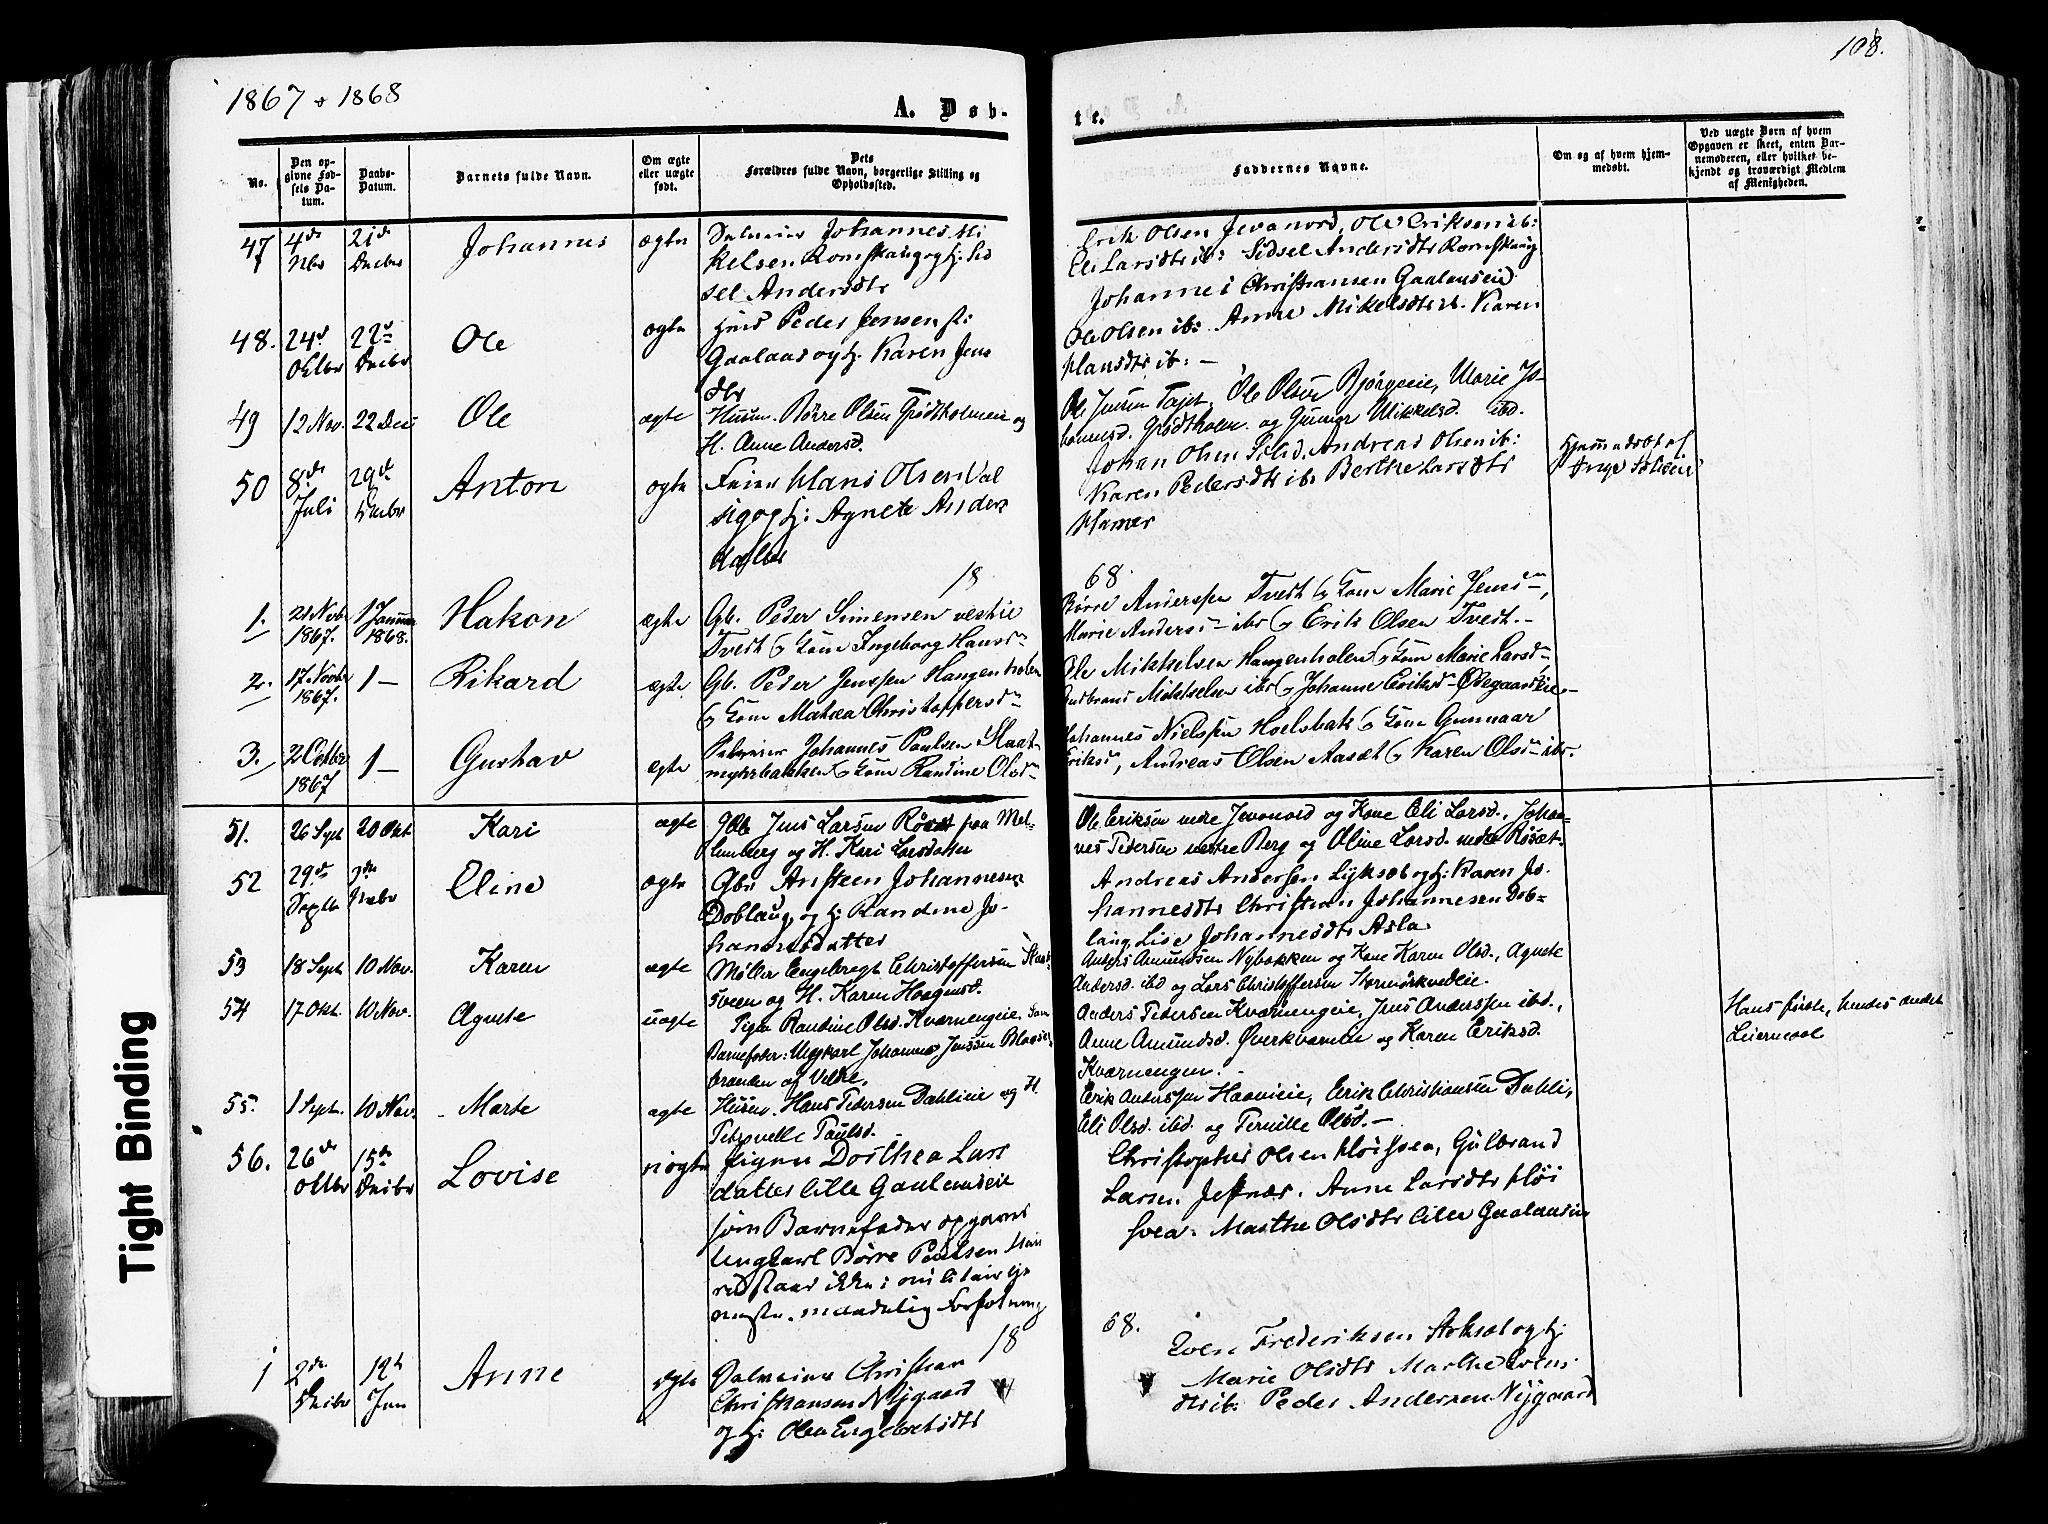 1867 & 1868
108.
A. Døb-
te.
No.
Den opgivne Fødsels Datum.
Daabs-Datum.
Barnets fulde Navn.
Om ægte eller uægte født.
Dets Forældres fulde Navn, borgerlige Stilling og Opholdssted.
Faddernes Navne.
Om og af hvem hjemmedøbt.
Ved uægte Børn af hvem Opgaven er skeet, enten Barnemoderen, eller hvilket bekjendt og troværdigt Medlem af Menigheden.
47 4de Nbr 21de Decbr Johannes ægte Johannes Mi
kelsen Romskaug og hj. Sid
sel Andersdtr
Erik Olsen Jevanord, Ole Eriksen ib:
Eli Larsdtr ib: Sidsel Andersdtr Romskaug
48. 24de Oktbr 22de Decbr Ole ægte Huus Peder Jensen
Gaalaas og hj. Karen Jens
dtr
Johannes Christiansen Gaalaaseie
Ole Olsen ib: Anne Mikelsdtr ib. Karen
Hansdtr ib: —
49 12 Nov. 22 Dec Ole ægte Husm. Børre Olsen Grødtholmeie og
H. Anne Andersd.
Ole Jensen Ole Olsen Bjørgeeie, Marie Jo-
hannesd. Grødtholm og Gunner Mikkelsd. ibd.
50 8de Juli 29de Decbr Anton ægte Hans Olsen Val
sig og hj: Agnete Anders
datter
Johan Olsen Andreas Olsen ib:
Karen Pedersdtr ib: Berthe Larsdtr
Hamer
Hjemmedøbt af
18
68.
1. 21 Novbr 1867. 1 Januar 1868. Hakon ægte Gb. Peder Simensen vestre
Tvedt & Kone Ingeborg Hansd
Børre Anderssen Tvedt & Kone Marie Jensd,
Marie Andersd ibd & Erik Olsen Tvedt.-
2. 17 Novbr 1867. 1 — Rikard ægte Gb. Peder Jenssen Haugenholen
& Kone Mathea Christophersd
Ole Mikkelsen Haugenholen & Kone Marie Larsd
Gudbrand Mikkelsen ibd & Johanne Eriksd Ødegaardseie.-
3. 2 Octbr 1867 1 — Gustav ægte Johannes Paulsen Slaat-
myhrbakken & Kone Randine Olsd
Johannes Nielssen Hoelsbak & Kone Gunnaar
Eriksd, Andreas Olsen Aasæt & Karen Olsd ibd.
51. 26 Sept 20 Okt. Kari ægte Gb. Jens Larsen Røset paa Mel-
lumberg og H. Kari Larsdatter
Ole Eriksen nedre Jevanord og Kone Eli Larsd., Johan-
nes Pedersen vestre Berg og Oline Larsd. nedre Røsæt.
52 29de Septbr 3die Novbr Eline ægte Gbr Ansteen Johannesen
Doblaug, og hj: Randine Jo-
hannesdatter
Andreas Andersen Lyksæt og hj: Karen Jo-
hannesdtr Christian Johannesen Dob-
laug, Lise Johannesdtr Asla
53 18 Sept 10 Nov. Karen ægte Møller Engebregt Christoffersen
sveen og H. Karen Haagensd.
Anders Amundsen Nybakken og Kone Karen Olsd., Agnete
Andersd. ibd og Lars Christoffersen
54 17 Okt. 10 Nov. Agnete uægte Pige Randine Olsd. Kværnengeie. Som
Barnefader: Ungkarl Johannes Jenssen
branden af Veldre.
Anders Pedersen Kværnengeie, Jens Anderssen ibd.,
Anne Amundsd. Øverkværnen og Karen Eriksd.
Kværnengen.
Hans første, hendes andet
Leiermaal
55. 1 Sept. 10 Nov. Marte ægte Husm. Hans Pedersen Dahlieie og H.
Petronelle Paulsd.
Erik Anderssen Haavieie, Erik Christiansen Dahli,
Eli Olsd. ibd. og Pernille Olsd. —
56. 26de Oktbr 15de Decbr Lovise uægte Pigen Dorthea Lars
datter lille Gaalaaseie
som Barnefader opgaves
Ungkarl Børre Paulsen
staar ikke i militair tje
neste. maadelig Forfatning
Christopher Olsen Høisveen, Gulbrand
Larsen Jesnæs. Anne Larsdtr Høi
sveen. Marthe Olsdtr lille Gaalaaseie
18
68.
1 2de Decbr 12te Jan Anne ægte Christian
Christiansen Nygaard
og hj: Olea Engebretsdtr
Even Frederiksen og hj
Marie Olsdtr Marthe Evens
dtr ib: Peder Andersen Nygaard
Tight Binding